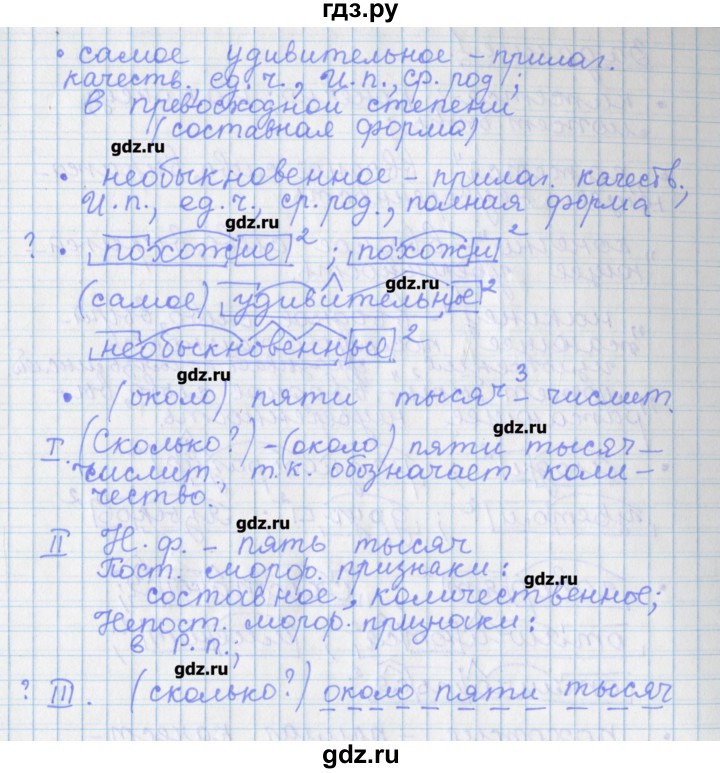 гдз.ру
• самое удивительное - прилаг.
качеств., ед. ч., И.п., ср. род;
в превосходной степени
(составная форма)
gdz.ru
• необыкновенное - прилаг. качеств.,
И.п., ед. ч., ср. род., полная форма
gdz.ru
? • похожие², похожи²
gdz.ru
(самое) удивительные²
необыкновенные²
gdz.ru
• (около) пяти тысяч³ - числит.
gdz.ru
I. (Сколько?) - (около) пяти тысяч -
числит., т.к. обозначает коли-
чество.
gdz.ru
II Н.ф. - пять тысяч
Пост. морф. признаки:
gdz.ru
составное, количественное;
Непост. морф. признаки:
в Р.п.;
gdz.ru
? III. (сколько?) около пяти тысяч
gdz.ru